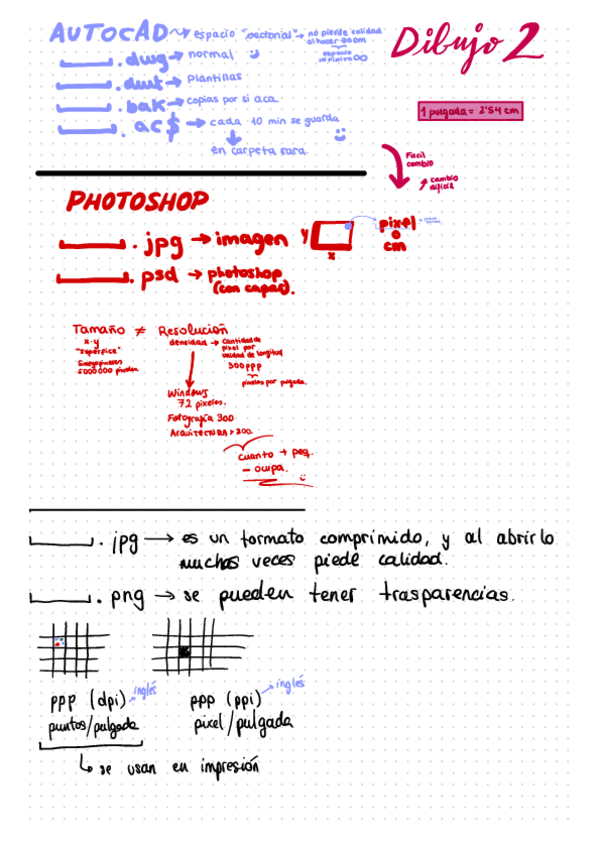 AUTOCAD espacio "vectorial" → no pierde calidad
al hacer zoom
espacio
infinito ∞
Dibujo 2
______.dwg → normal
______.dwt → Plantillas
______.bak → copias por si aca
______.ac$ → cada 10 min se guarda
en carpeta rara.
1 pulgada = 2'54 cm
Facil
cambio
cambio
dificil
PHOTOSHOP
______.jpg → imagen
y
x
pixel
o
cm
______.psd → photoshop
(con capas).
Tamaño ≠ Resolución
x·y
"superficie"
5megapixeles
5000000 pixeles
densidad → Cantidad de
pixel por
unidad de longitud
300ppp
pixeles por pulgada.
Windows
72 pixeles.
Fotografía 300
Arquitectura > 200
cuanto + peq.
- ocupa.
______.jpg → es un formato comprimido, y al abrirlo
muchas veces piede calidad.
______.png → se pueden tener trasparencias.
ppp (dpi) → inglés
puntos/pulgada
ppp (ppi) → inglés
pixel/pulgada
↳ se usan en impresión